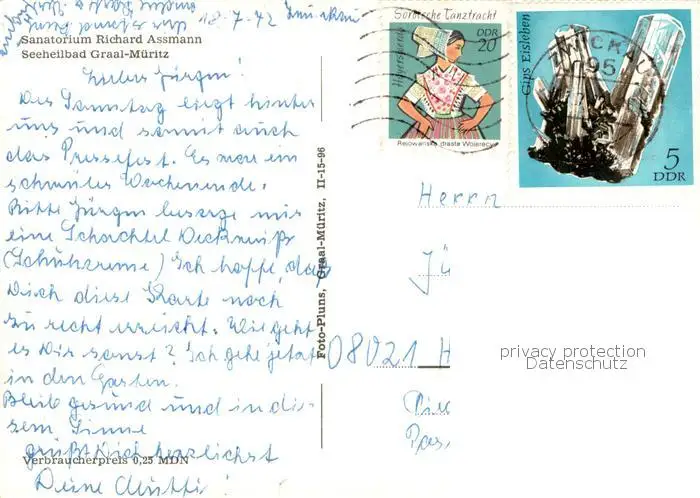 18.7.72 Zwickau
Sanatorium Richard Assmann
Seeheilbad Graal-Müritz
Lieber Jürgen!
Der Samstag liegt hinter
uns und somit auch
das Pressefest. Es war ein
schwüles Wochenende.
Bitte Jürgen besorge mir
eine Schachtel Deckweiß
(Schuhcreme) Ich hoffe, daß
Dich diese Karte noch
zu recht erreicht. Wie geht
es Dir sonst? Ich gehe jetzt
in den Garten.
Bleib gesund und in die-
sem Sinne
grüßt Dich herzlichst
Verbraucherpreis 0,25 MDN
Deine Mutti!
Foto-Pluns, Graal-Müritz, II-15-96
Sorbische Tanztracht
Hoyerswerda
DDR
20
Rejowanska drasta Wojerecy
Gips Eisleben
5
DDR
ZWICKAU
95
Herrn
Jü
08021 H
privacy protection
Datenschutz